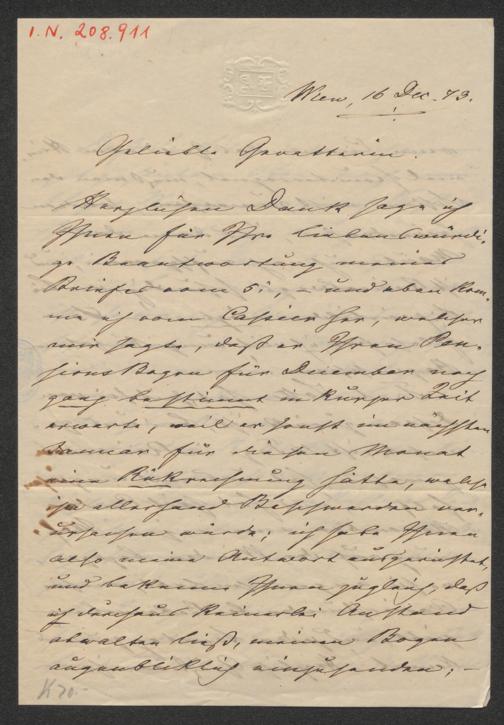 I.N. 208.911
Wien, 16 Dec. 73.
Geliebte Gevatterin.
Herzlichen Dank sage ich
Ihnen für Ihre liebenswürdi-
ge Beantwortung meines
Briefes vom 5t, – und eben kom-
me ich vom Cassier her, welcher
mir sagte, daß er Ihren Pen-
sionsBogen für December noch
ganz bestimmt in kurzer Zeit
erwarte, weil er sonst im nächsten
Januar für diesen Monat
eine Rükrechnung hätte, welche
ihm allerhand Beschwerden ver-
ursachen würde; ich habe Ihnen
also meine Antwort ausgerichtet,
und bekenne Ihnen zugleich, daß
ich durchaus keinerlei Anstand
obwalten ließ, meinen Bogen
augenbliklich einzusenden; –
K 70.-